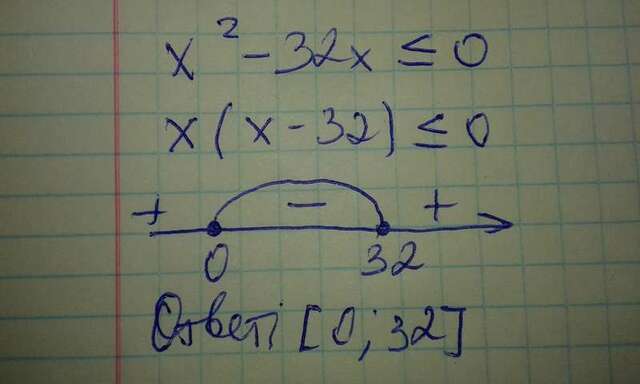 x² - 32x ≤ 0
x(x - 32) ≤ 0
+ - +
0 32
Ответ: [0; 32]